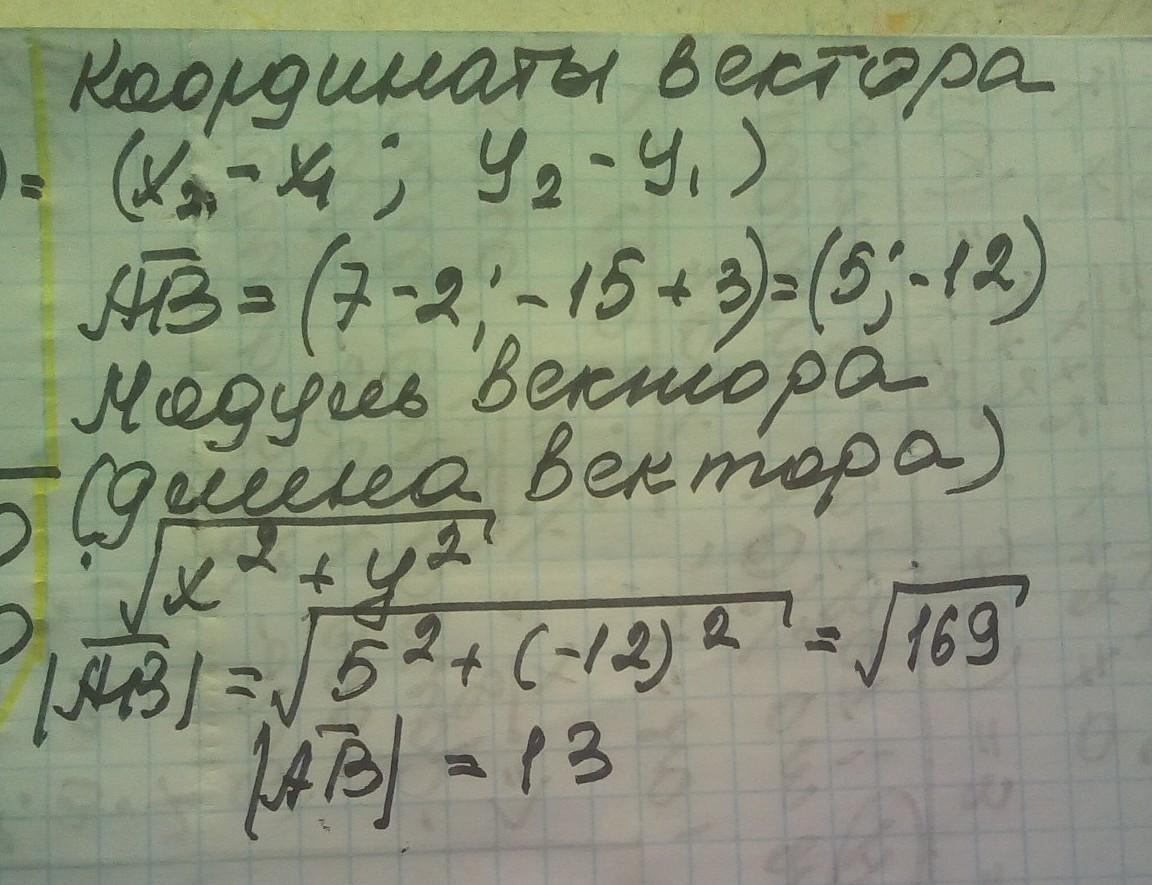 Координаты вектора
)= (x₂ - x₁; y₂ - y₁)
A̅B̅ = (7 - 2; -15 + 3) = (5; -12)
Модуль вектора
(длина вектора)
√(x² + y²)
|A̅B̅| = √(5² + (-12)²) = √169
|A̅B̅| = 13